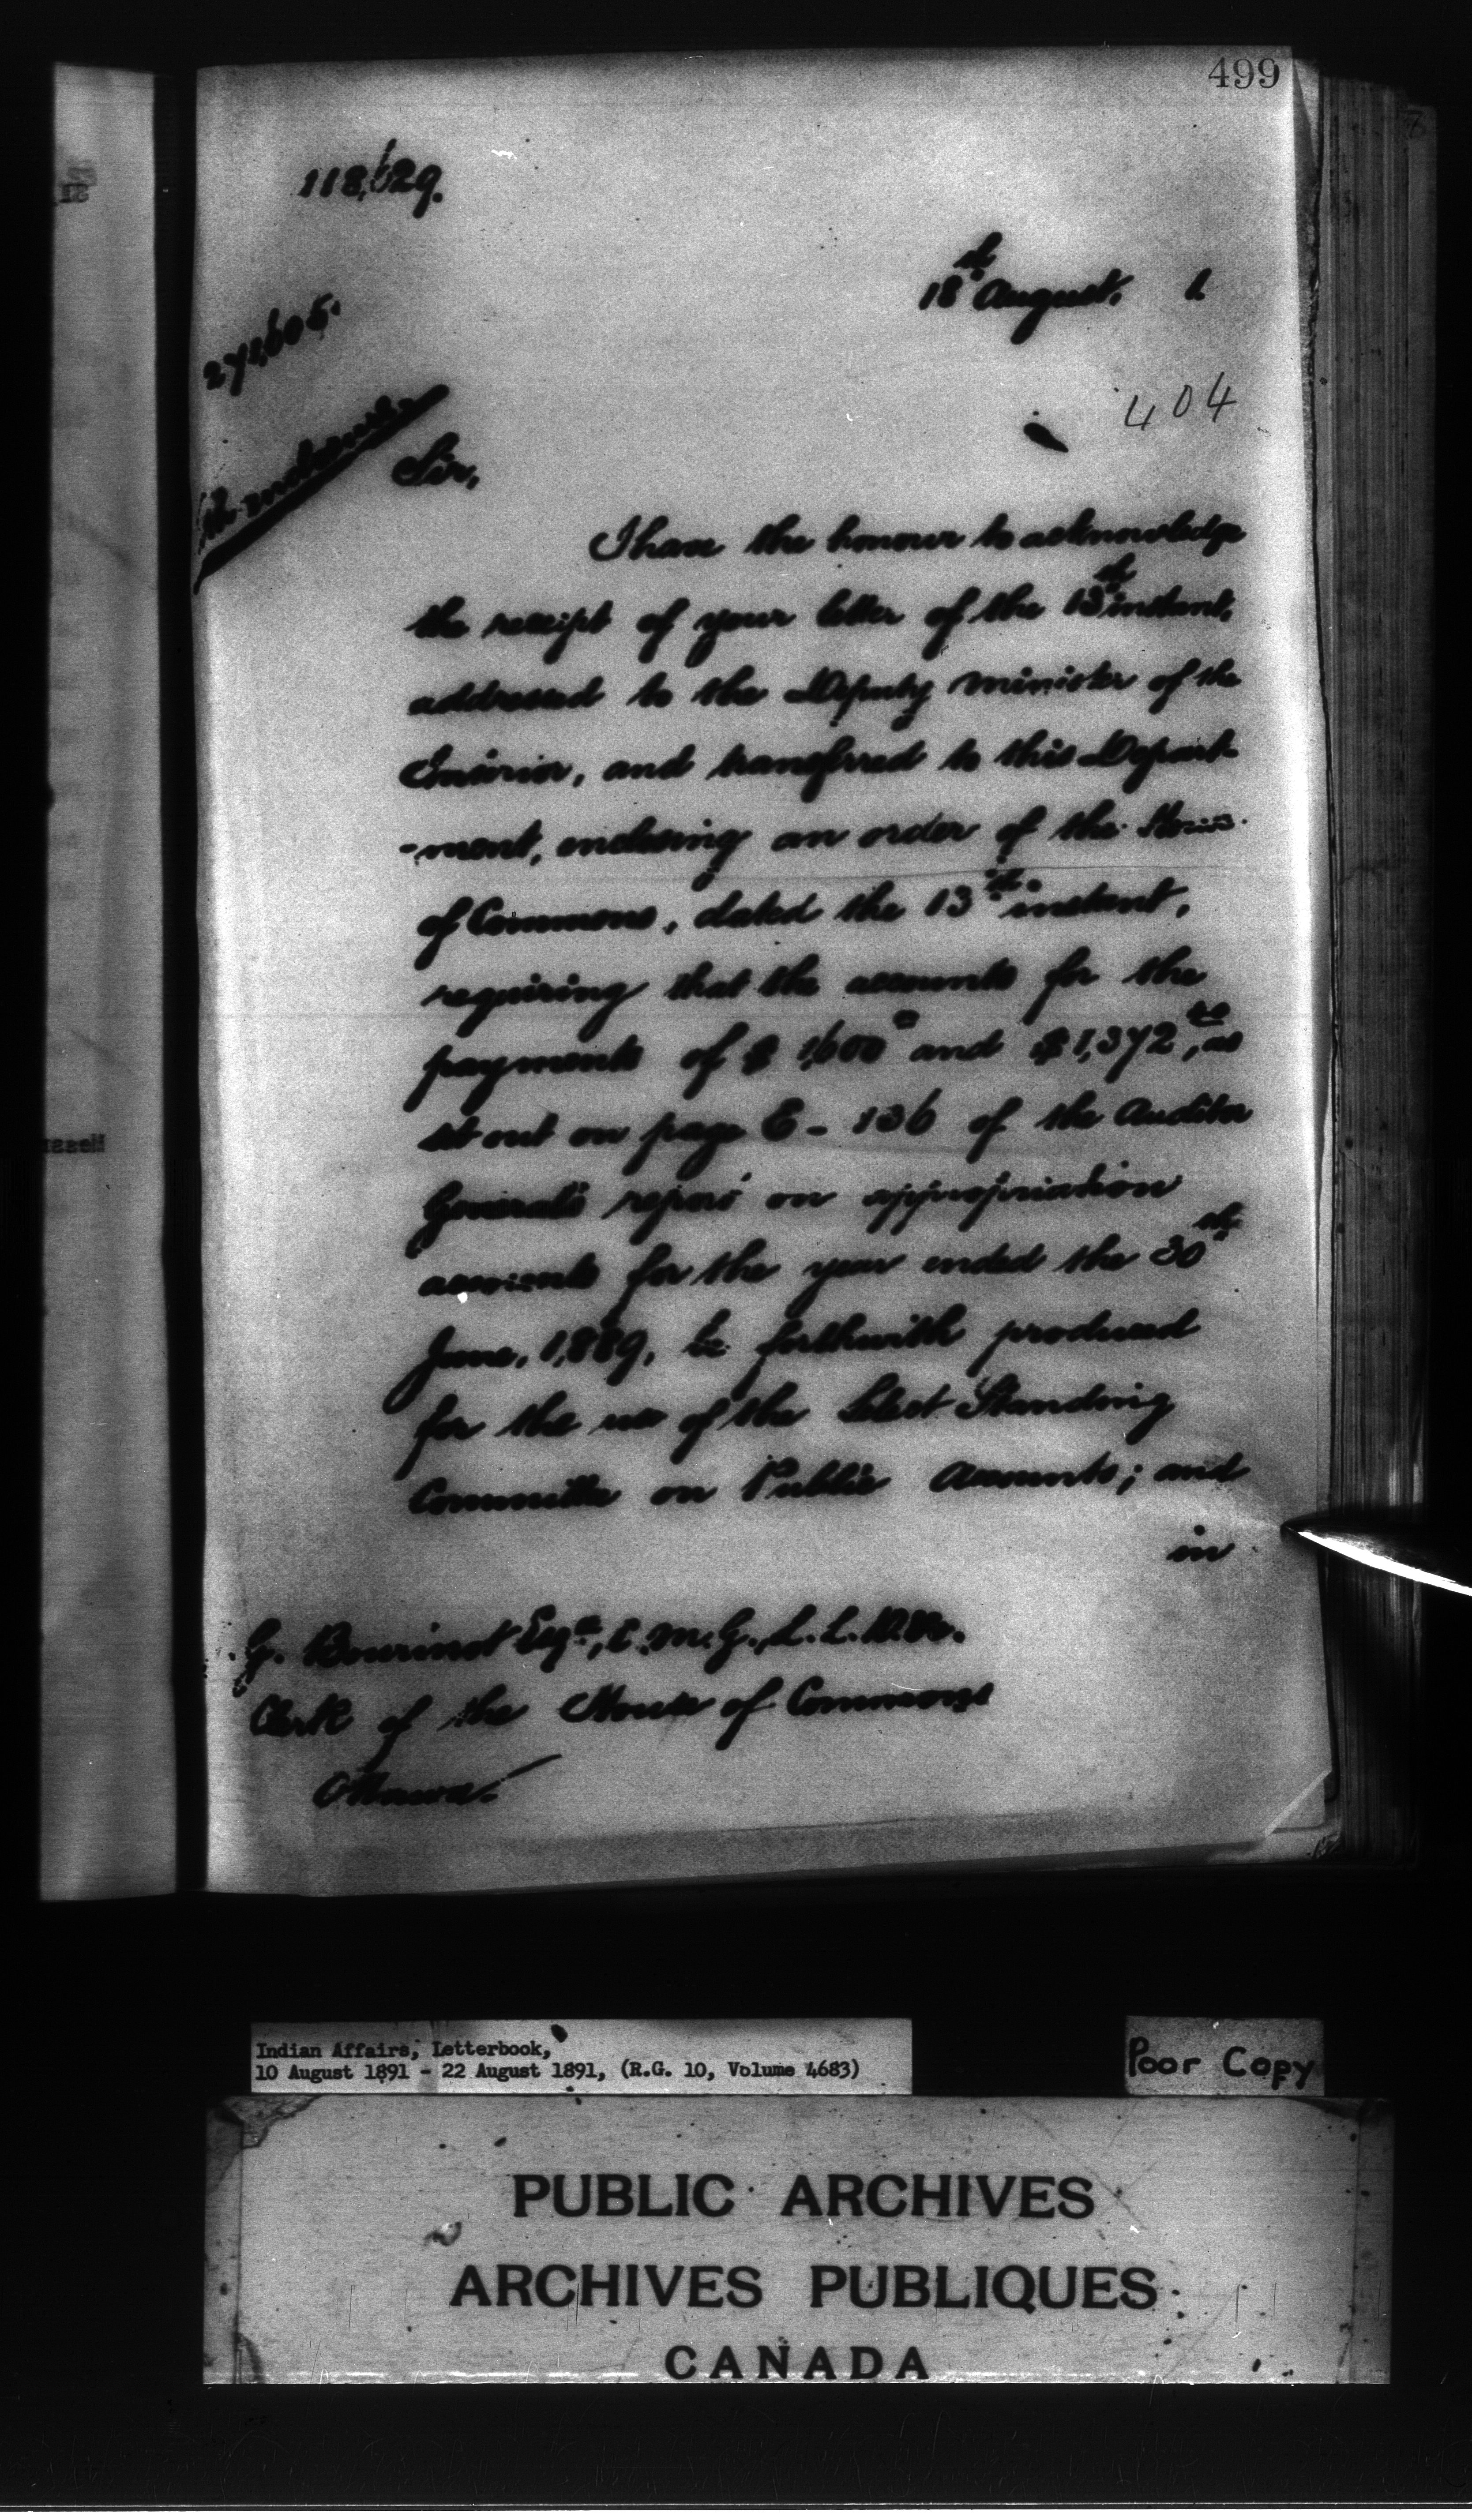 499
118,629.
18th August, 1
404
Sir,
I have the honour to acknowledge
the receipt of your letter of the 13th instant,
addressed to the Deputy Minister of the
Interior, and transferred to this Depart
-ment, enclosing an order of the House
of Commons, dated the 13th instant,
requiring that the accounts for the
payments of $ 1,600 and $1,372, as
set out on page E - 136 of the Auditor
General's report on appropriation
accounts for the year ended the 30th
June, 1,889, be forthwith produced
for the use of the Select Standing
Committee on Public Accounts; and
in
G. Bourinot Esqre, C.M.G., L.L.D. &c.
Clerk of the House of Commons
Ottawa.
Indian Affairs, Letterbook,
10 August 1891 - 22 August 1891, (R.G. 10, Volume 4683)
Poor Copy
PUBLIC ARCHIVES
ARCHIVES PUBLIQUES
CANADA